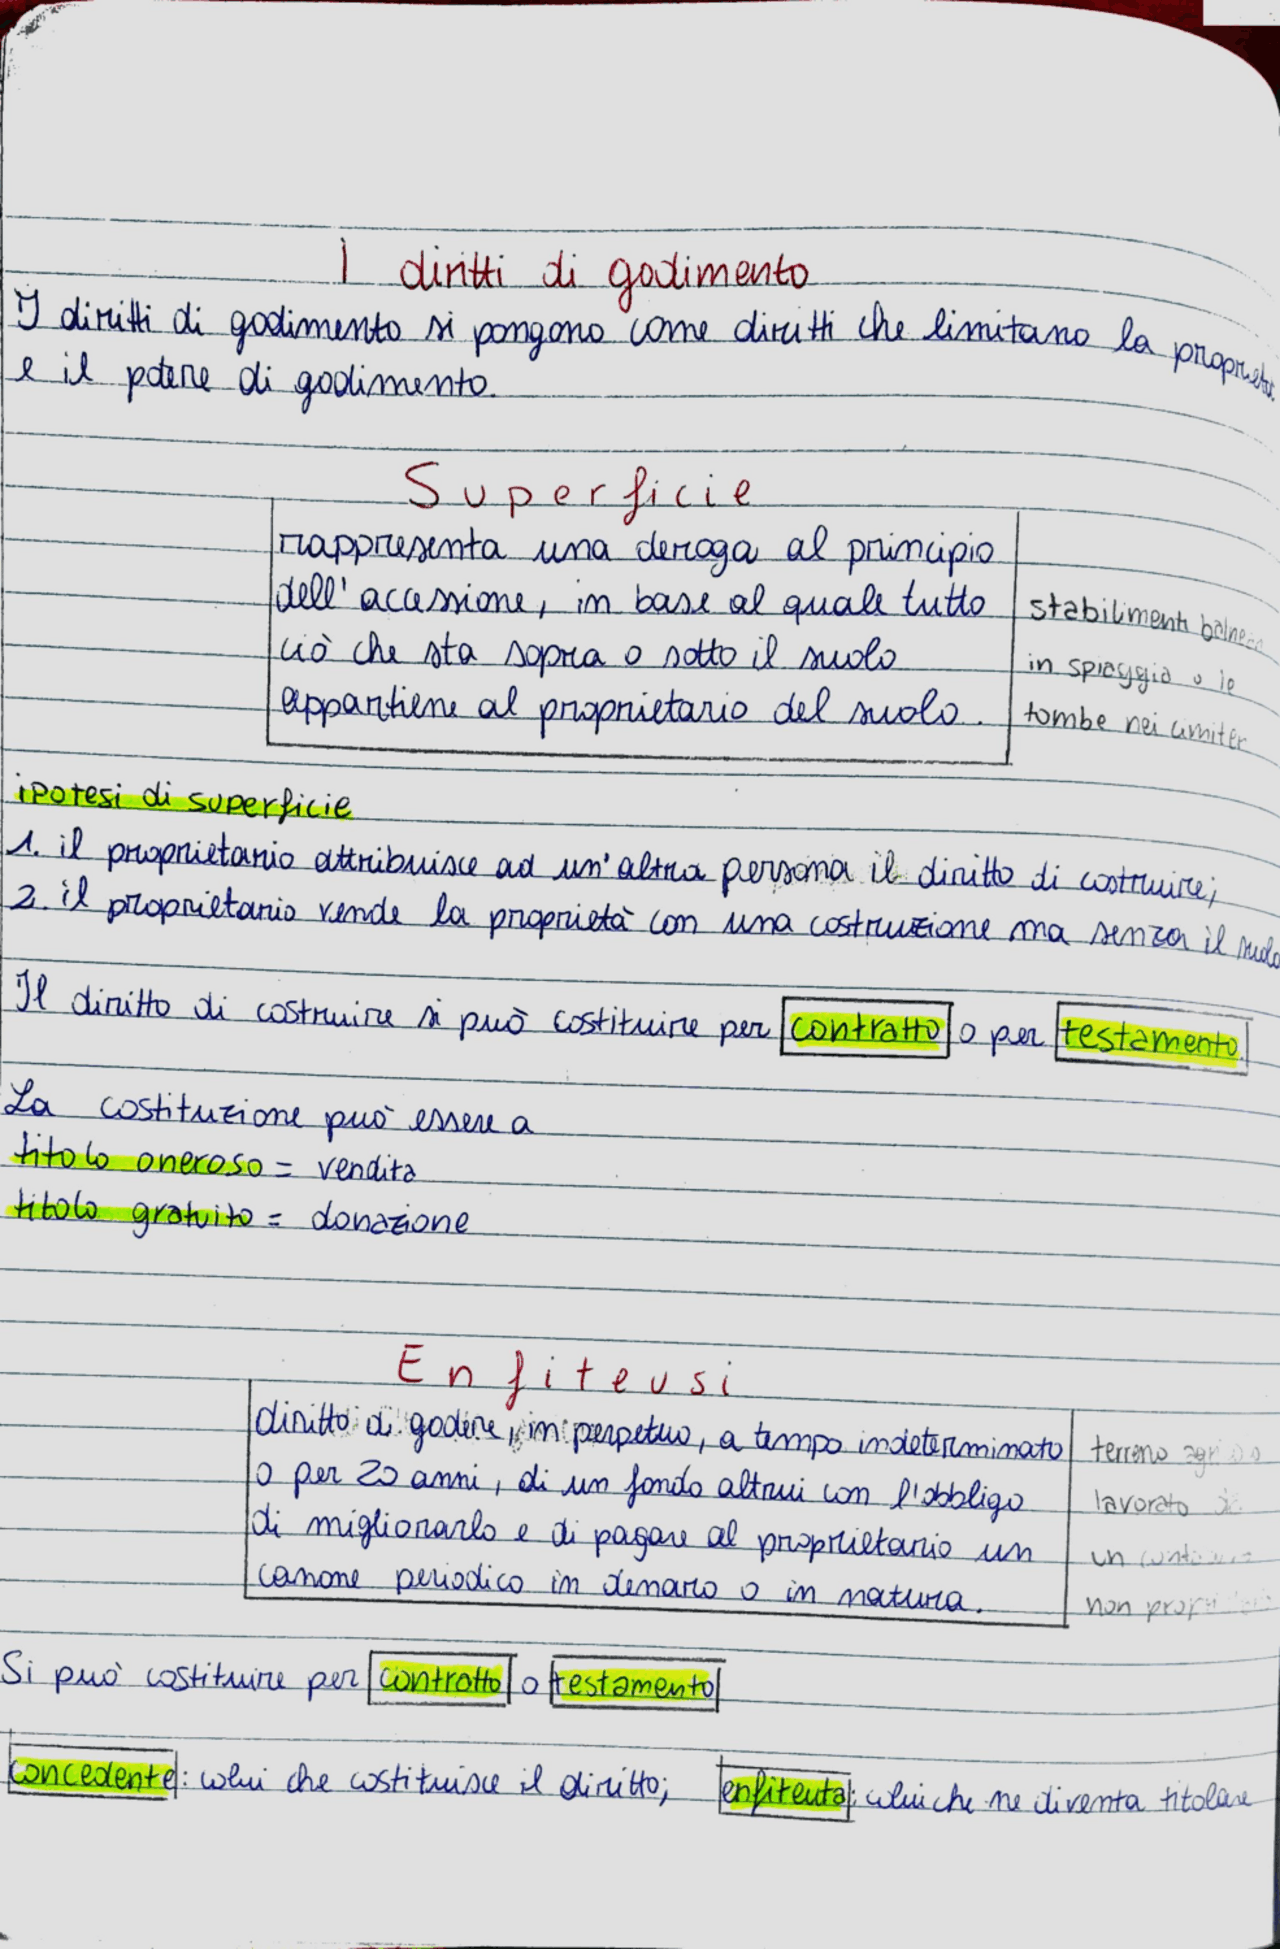 I diritti di godimento
I diritti di godimento si pongono come diritti che limitano la proprietà
e il potere di godimento.
Superficie
rappresenta una deroga al principio
dell'accessione, in base al quale tutto
ciò che sta sopra o sotto il suolo
appartiene al proprietario del suolo.
stabilimenti
in spiaggia o le
tombe nei cimiter
ipotesi di superficie
1. il proprietario attribuisce ad un'altra persona il diritto di costruire;
2. il proprietario vende la proprietà con una costruzione ma senza il suolo
Il diritto di costruire si può costituire per contratto o per testamento.
La costituzione può essere a
titolo oneroso = vendita
titolo gratuito = donazione
Enfiteusi
diritto di godere, in perpetuo, a tempo indeterminato
o per 20 anni, di un fondo altrui con l'obbligo
di migliorarlo e di pagare al proprietario un
canone periodico in denaro o in natura.
terreno
lavorato
un
non
Si può costituire per contratto o testamento
concedente: colui che costituisce il diritto; enfiteuta: colui che ne diventa titolare